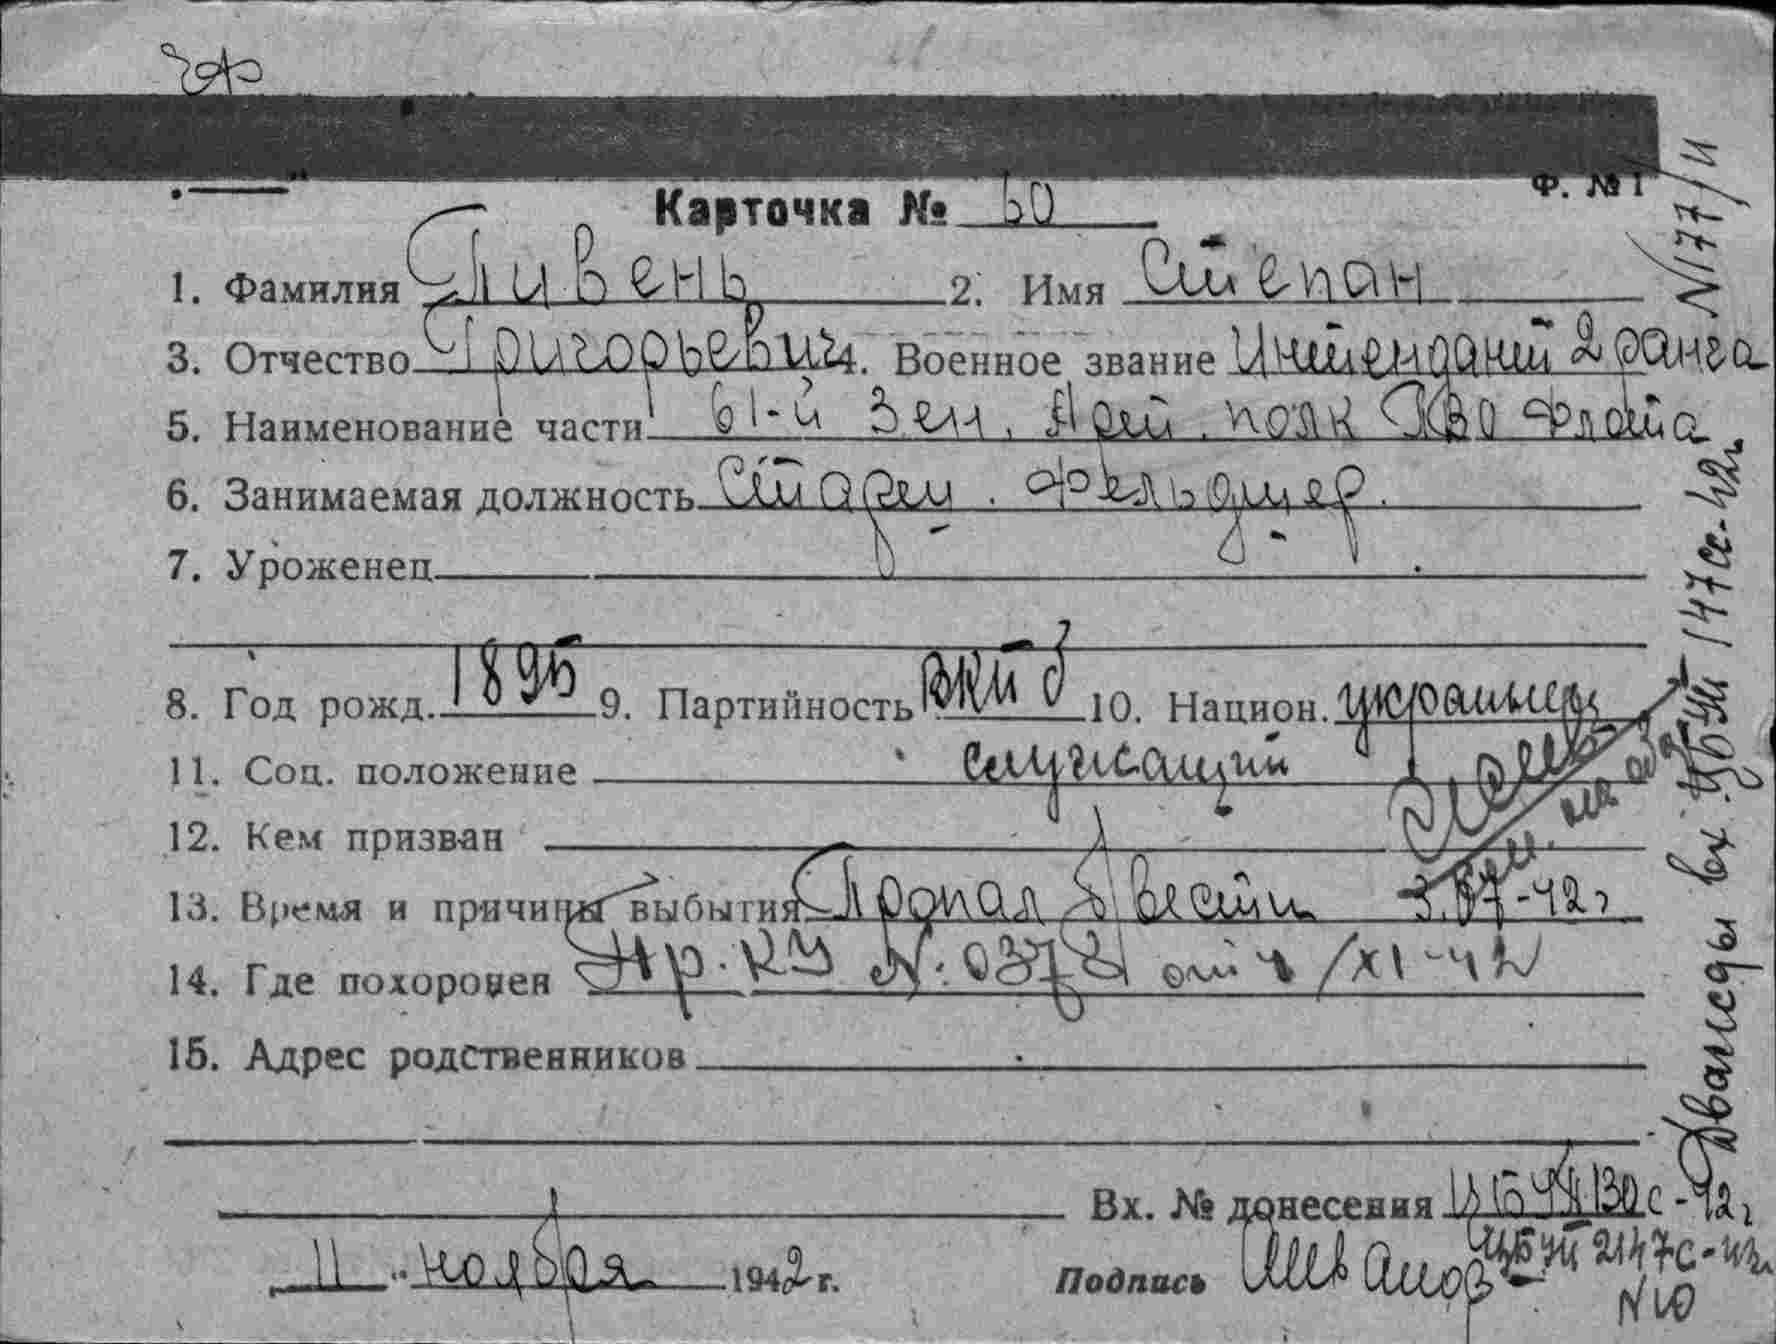 Ф. № 1
Карточка № 60
1. Фамилия Пивень 2. Имя Степан
3. Отчество Григорьевич 4. Военное звание Интендант 2 ранга
5. Наименование части 61-й Зен. Арт. полк КВО Флота
6. Занимаемая должность Старш. фельдшер.
7. Уроженец
8. Год рожд. 1895 9. Партийность ВКП б 10. Национ. украинец
11. Соц. положение служащий
12. Кем призван
13. Время и причины выбытия Пропал б/вести 3.07-42г
14. Где похоронен Пр. КУ №: 0373 от 4/XI-42
15. Адрес родственников
Вх. № донесения ЦБУП 130с-42г
ЦБУП 2147с-43г
"11" ноября 1942 г. Подпись
N 10
N177/И
Дважды вх. ЦБУП 147сс-42г